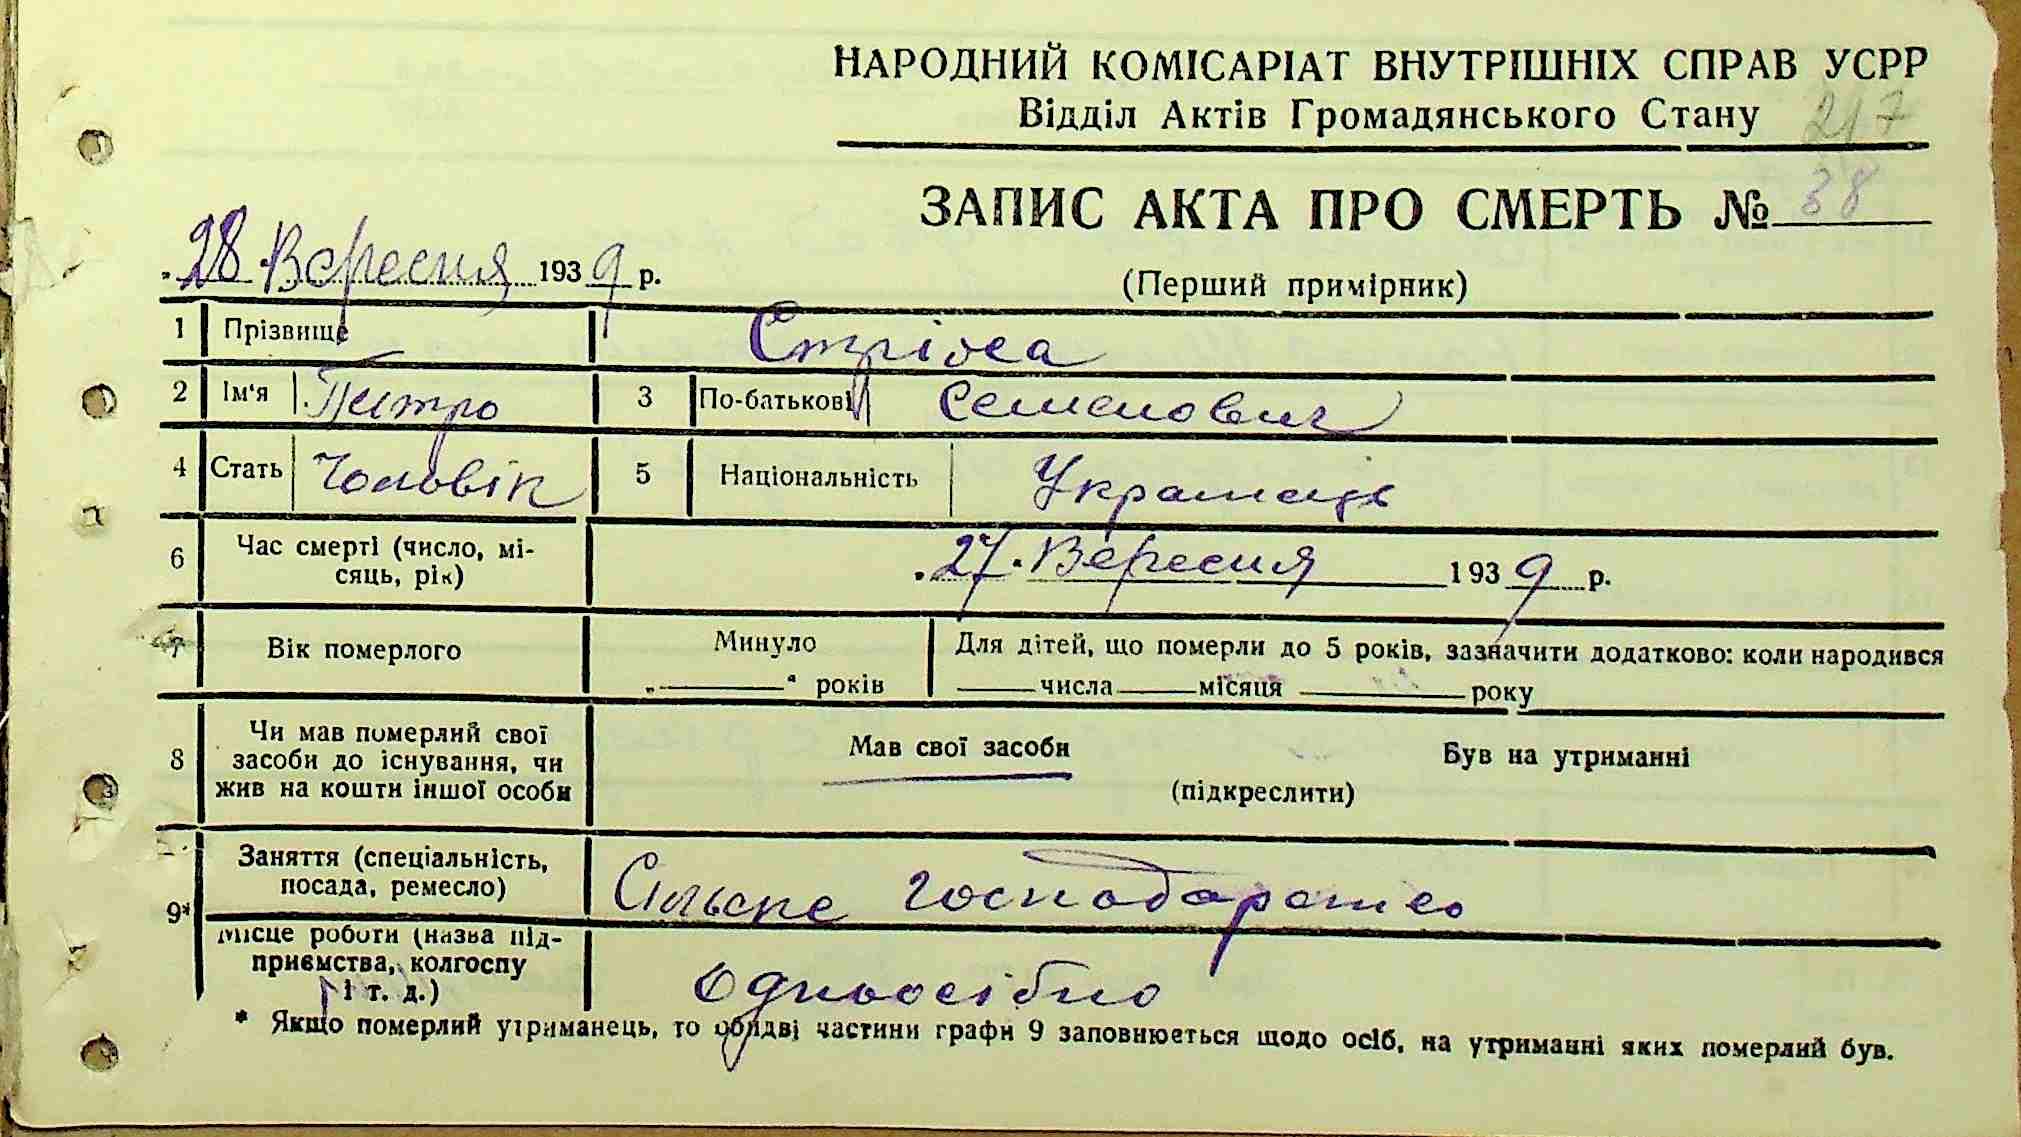 НАРОДНИЙ КОМІСАРІАТ ВНУТРІШНІХ СПРАВ УСРР
Відділ Актів Громадянського Стану 217
ЗАПИС АКТА ПРО СМЕРТЬ № 38
„28" Вересня 1939 р.
(Перший примірник)
1 Прізвище
2 Ім'я Петро 3 По-батькові Семенович
4 Стать Чоловік 5 Національність Українець
6 Час смерті (число, мі-
сяць, рік) „27" Вересня 1939 р.
7 Вік померлого Минуло
„ " років
Для дітей, що померли до 5 років, зазначити додатково: коли народився
числа місяця року
8 Чи мав померлий свої
засоби до існування, чи
жив на кошти іншої особи
Мав свої засоби Був на утриманні
(підкреслити)
9* Заняття (спеціальність,
посада, ремесло) Сільске господарство
Місце роботи (назва під-
приємства, колгоспу
і т. д.) Одноосібно
* Якщо померлий утриманець, то обидві частини графи 9 заповнюється щодо осіб, на утриманні яких померлий був.